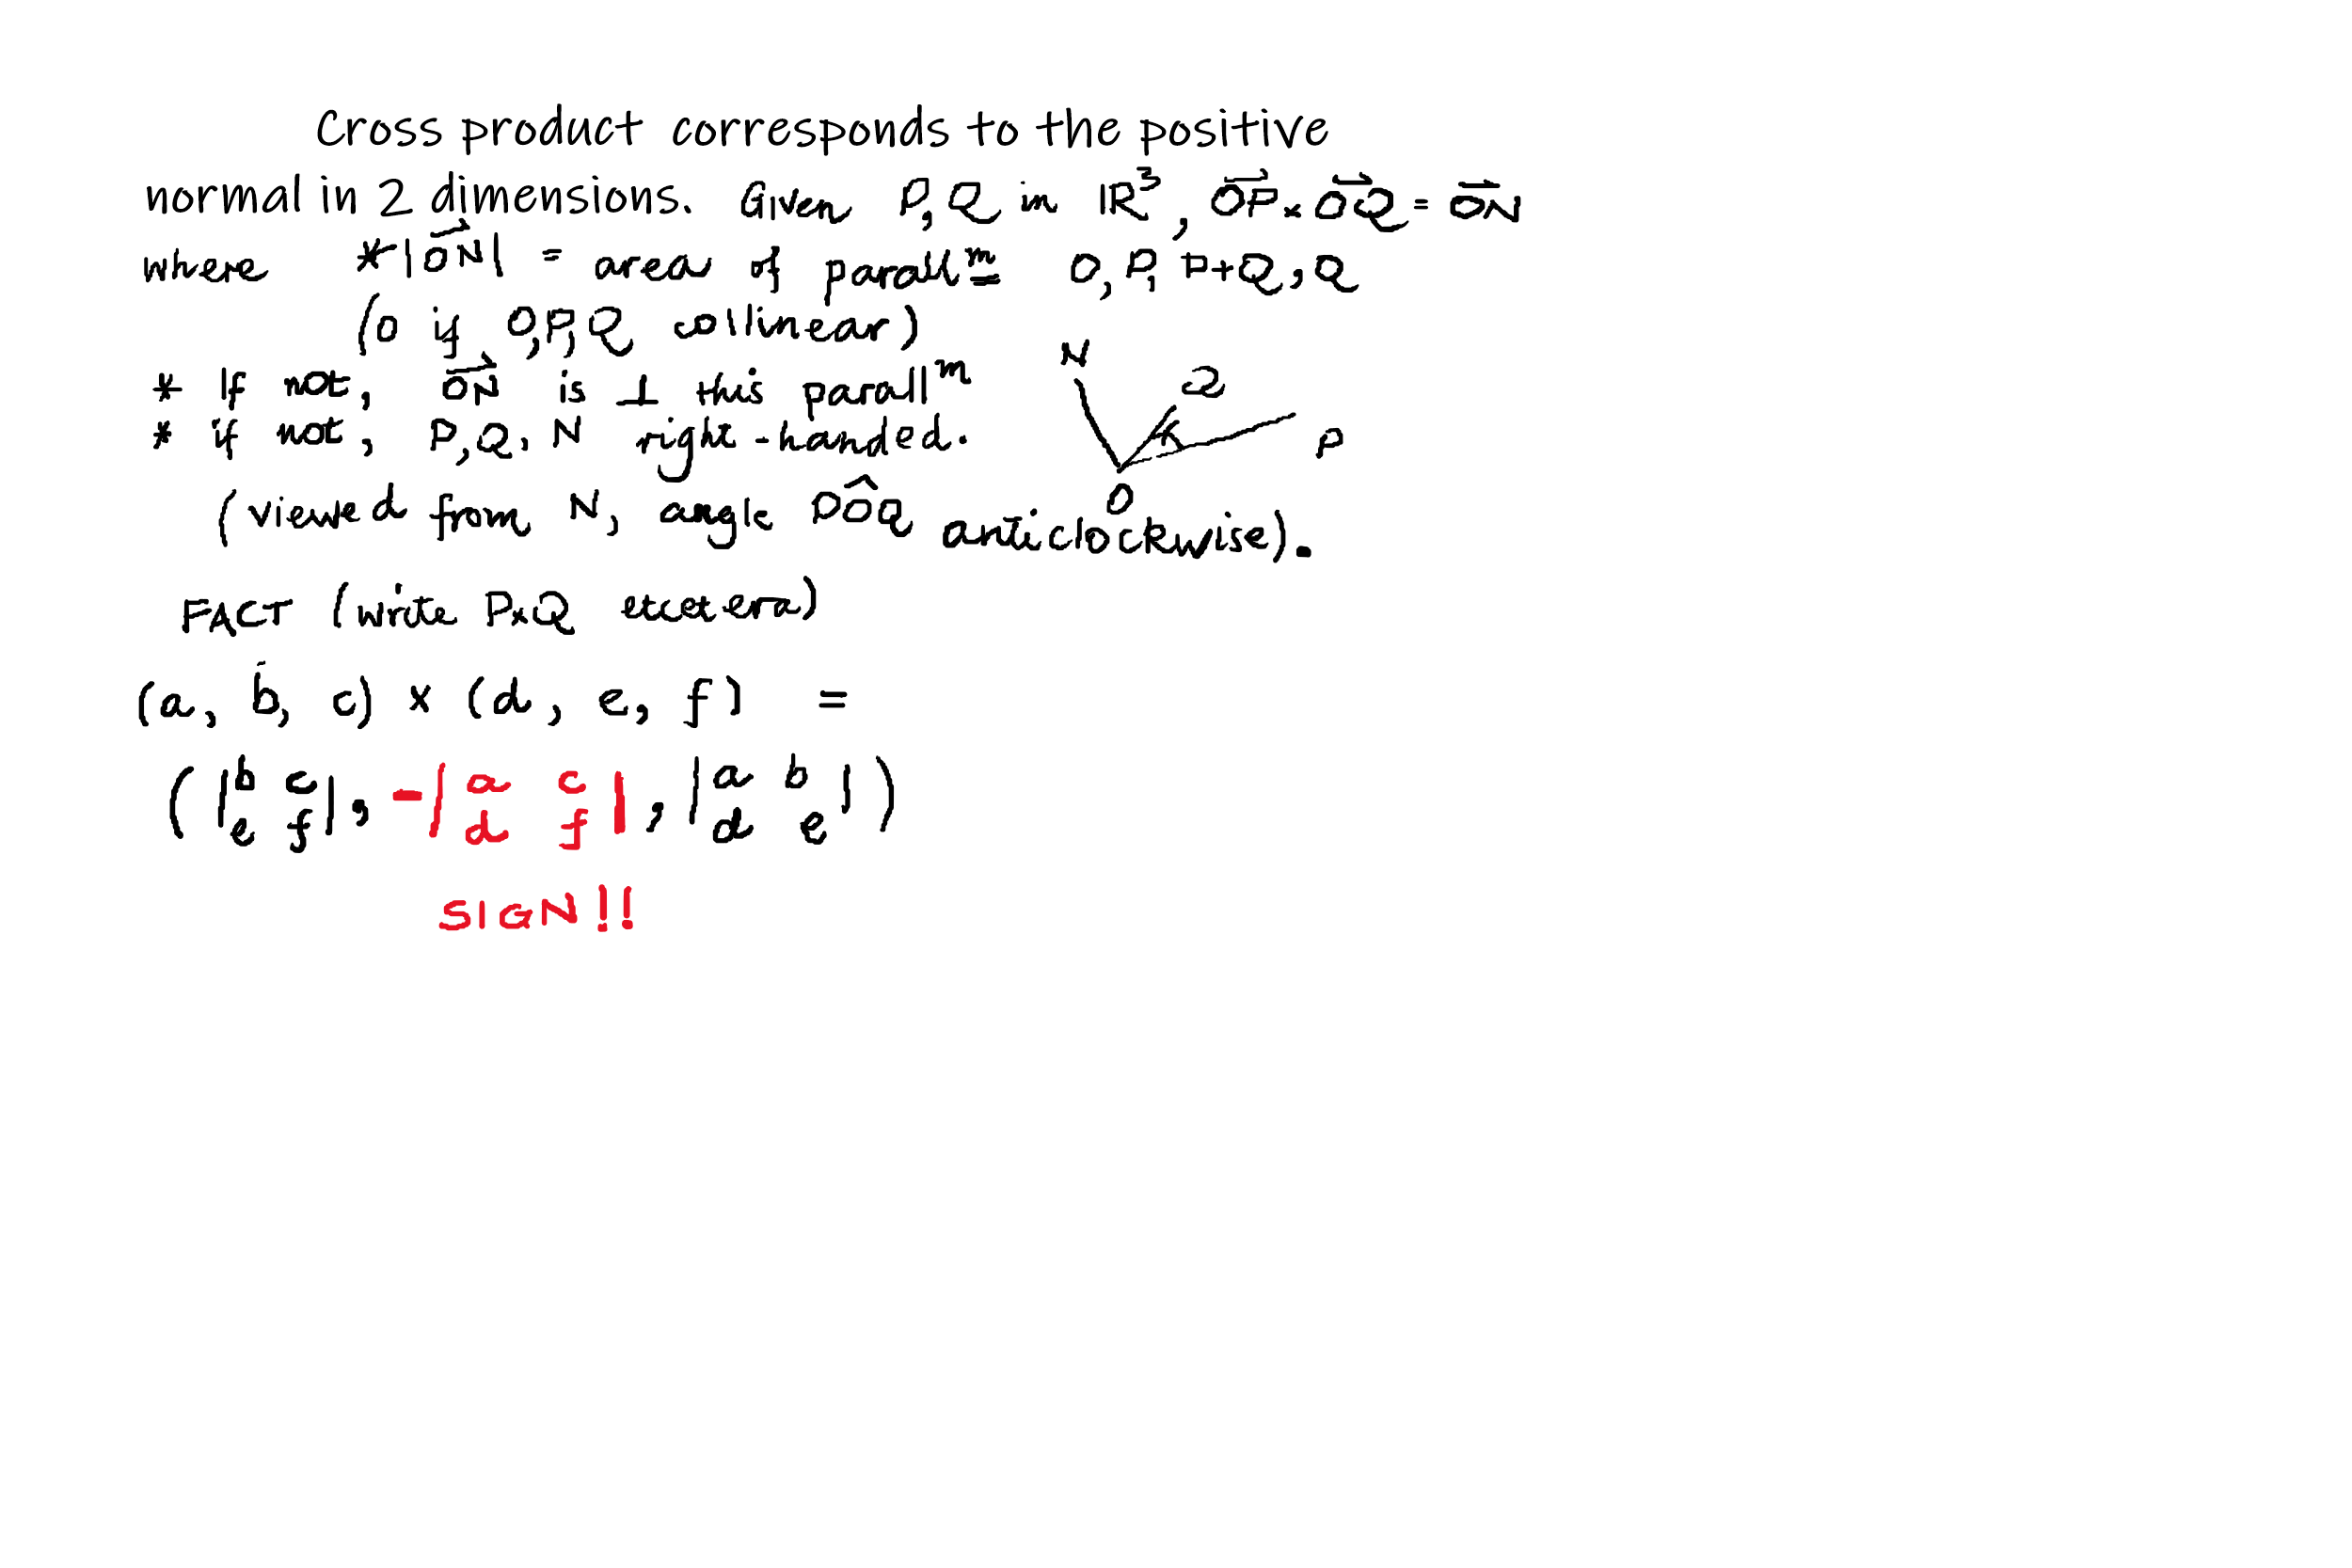 Cross product corresponds to the positive
normal in 2 dimensions. Given P,Q in ℝ³, O⃗P × O⃗Q = O⃗N
where * |O⃗N| = area of parallᵐ O, P, P+Q, Q
(0 if O,P,Q collinear)
* If not, O⃗N is ⊥ this parallᵐ
* if not, P,Q,N right-handed.
N Q P O
(viewed from N, angle PÔQ anticlockwise).
FACT (write P×Q etcetera)
(a, b, c) × (d, e, f) =
(|b c|, -|a c|, |a b|)
e f d f d e
SIGN!!